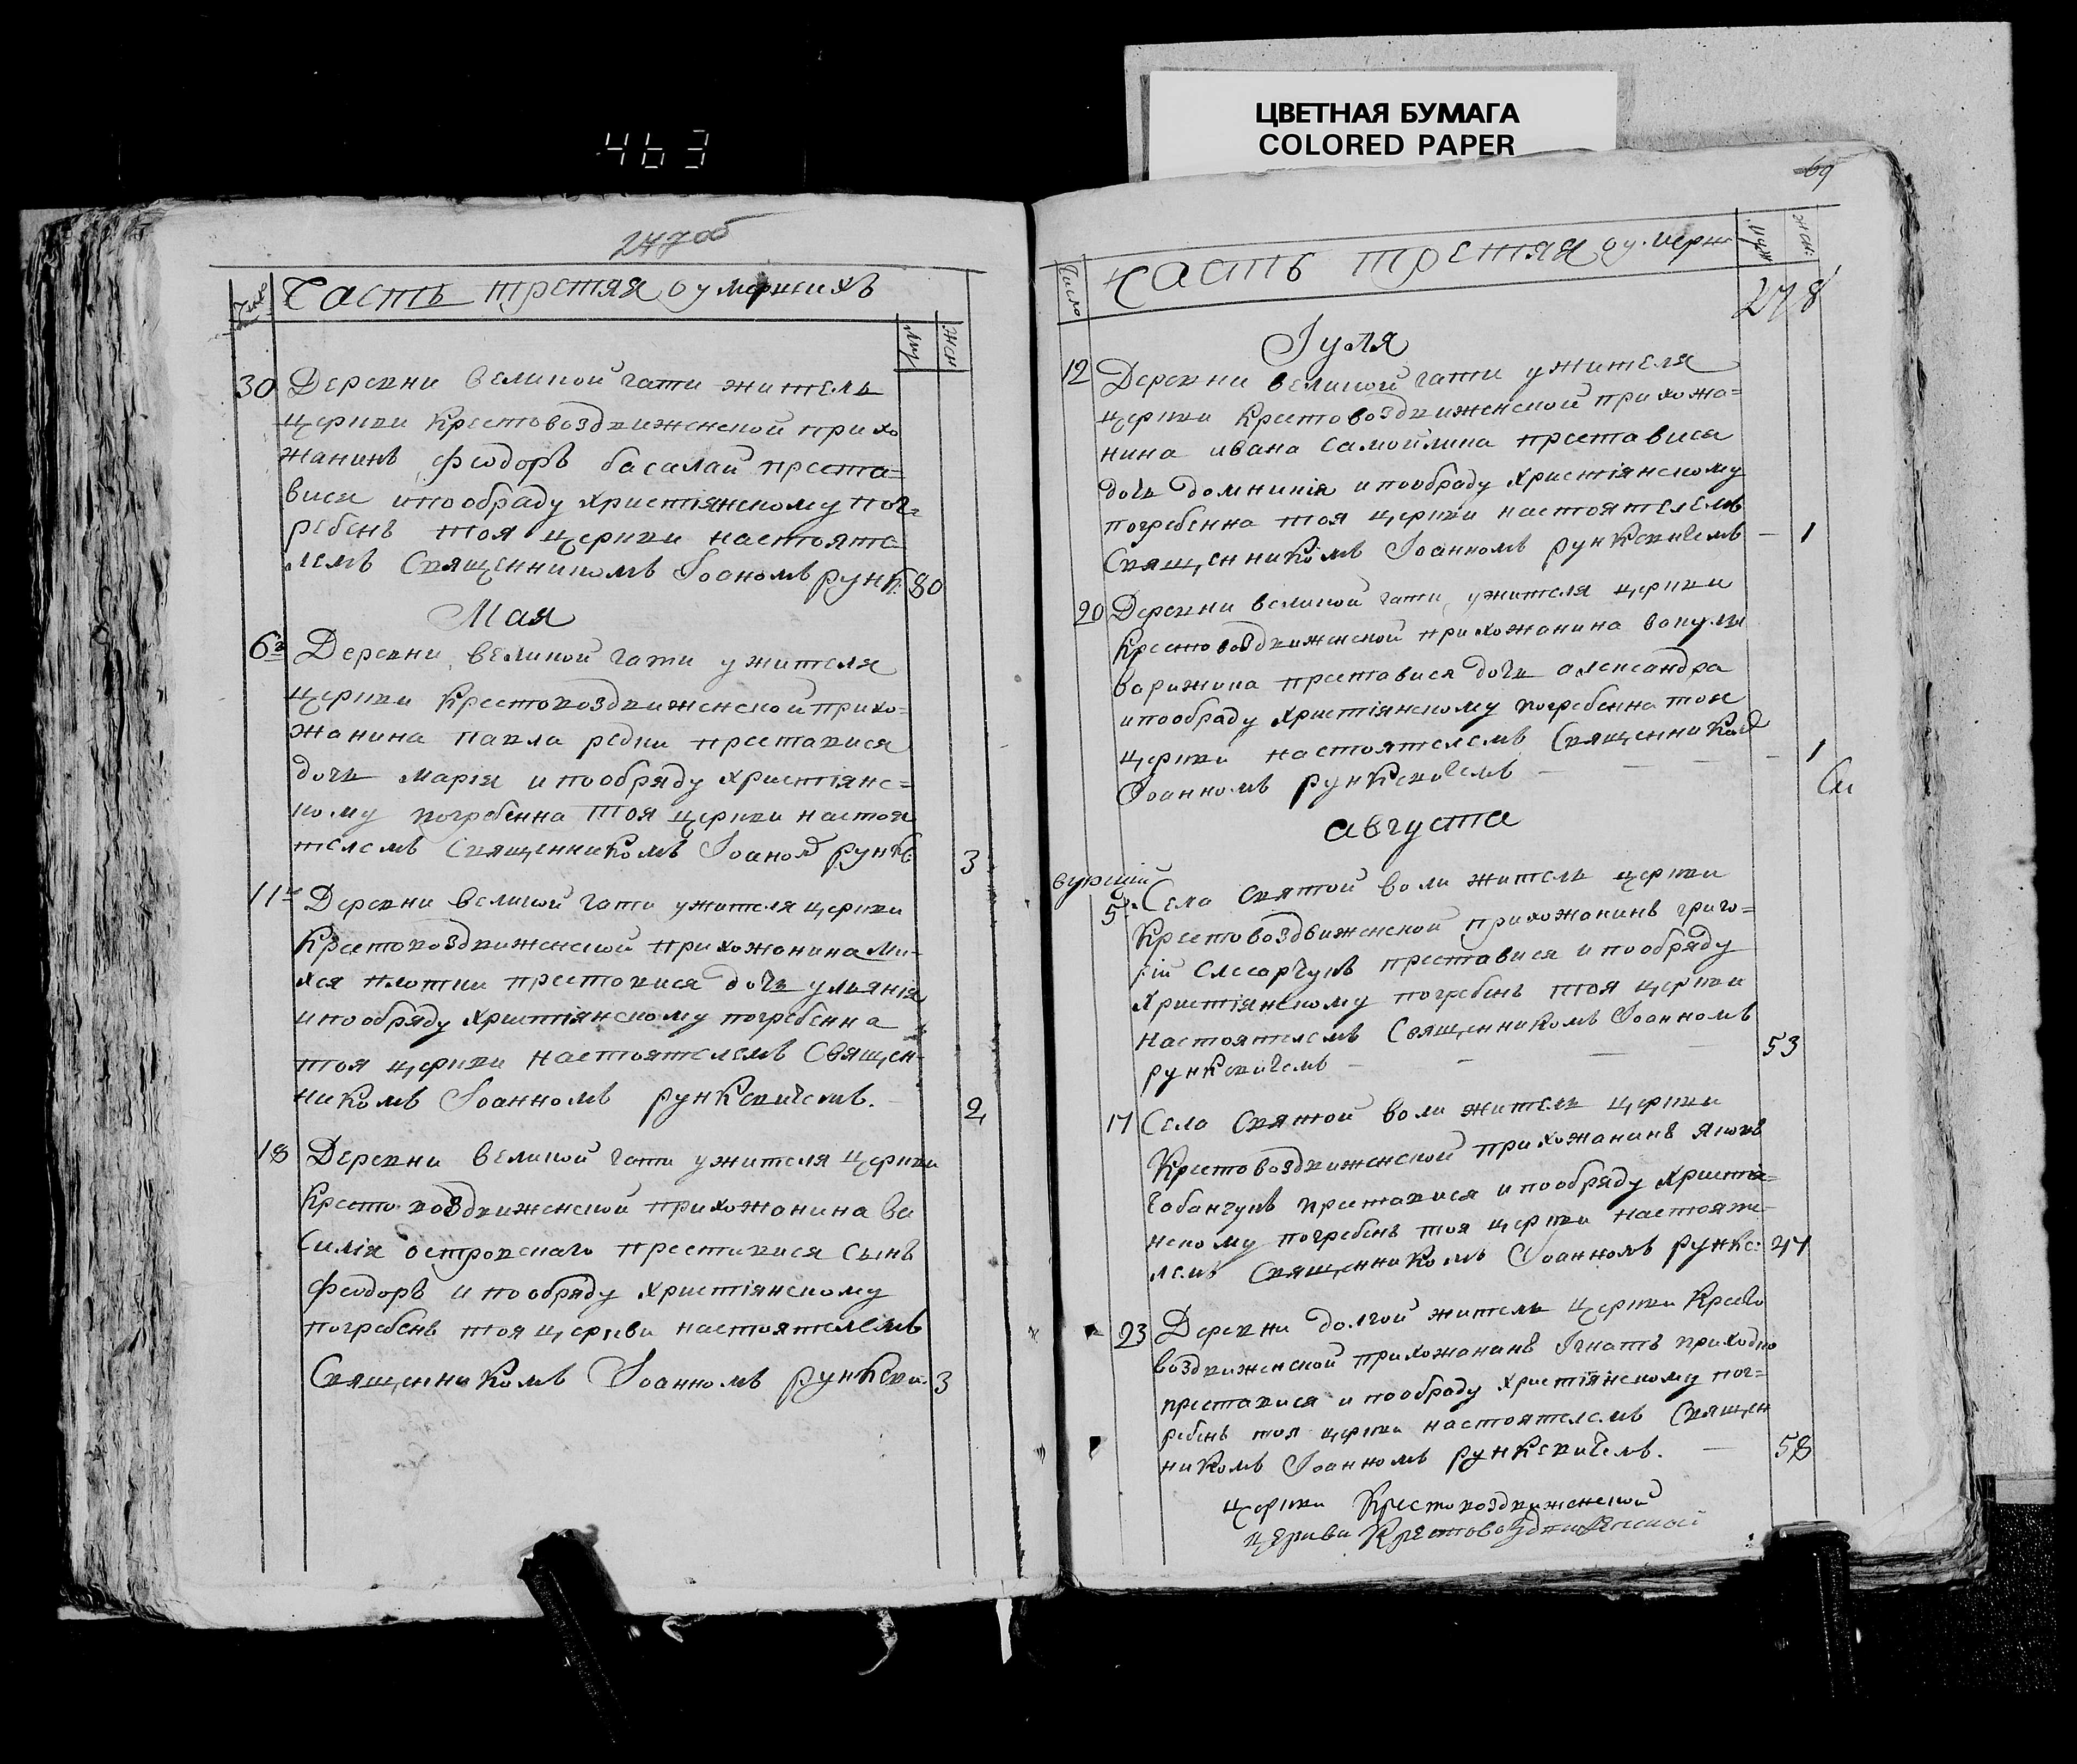 463
ЦВЕТНАЯ БУМАГА
COLORED PAPER
277 об
Число
Часть третяя оумершихъ
му
жен
30 Деревни великой гати житель
церкви Крестовоздвиженской прихо
жанинъ феодоръ басалай преста=
вися ипообряду християнскому пог=
ребенъ тоя церкви настояте
лемъ Священникомъ Іоаномъ рунк: 80
Мая
6 Деревни великой гати ужителя
церкви Крестовоздвиженской прихо=
жанина павла редки преставися
дочь марія ипообряду християнс=
кому погребенна тоя церкви настоя
телемъ Священникомъ Іоаном рунке: 3
11 Деревни великой гати ужителя церкви
Крестовоздвиженской прихожанина Ми-
хея плотки преставися дочь ульянія
ипообряду християнскому погребенна
тоя церкви настоятелемъ Священ-
никомъ Іоанномъ рункевичемъ. 2
18 Деревни великой гати ужителя церкви
Крестовоздвиженской прихожанина ва
силія островскаго преставися сынъ
феодоръ ипообряду християнскому
погребенъ тоя церкви настоятелемъ
Священникомъ Іоанномъ рункеви. 3
69
Число
Часть третяя оумерш
муж
жен:
278
Іуля
12 Деревни великой гати ужителя
церкви Крестовоздвиженской прихожа=
нина ивана самойлика преставися
дочь домникія ипообряду християнскому
погребенна тоя церкви настоятелемъ
Священникомъ Іоанномъ рункевичемъ – 1
20 Деревни великой гати ужителя церкви
Крестовоздвиженской прихожанина вакулы
варижука преставися дочь александра
ипообряду християнскому погребенна тоя
церкви настоятелемъ Священником
Іоанномъ рункевичемъ – – – – 1
августа
5. Села Святой воли житель церкви
Крестовоздвиженской прихожанинъ григо=
рій Слесарчукъ преставися ипообряду
християнскому погребенъ тоя церкви
настоятелемъ Священникомъ Іоанномъ
рункевичемъ – – – – 53
17 Села Святой воли житель церкви
Крестовоздвиженской прихожанинъ яковъ
Чабанчукъ преставися ипообряду християн=
нскому погребенъ тоя церкви настояте-
лемъ Священникомъ Іоанномъ рунке: 47
23 Деревни долгой житель церкви Кресто
воздвиженской прихожанинъ Ігнатъ приходко
преставися ипообряду християнскому пог=
ребенъ тоя церкви настоятелемъ Священ
никомъ Іоанномъ рункевичемъ. – 58
церкви Крестовоздвиженской
церкви Крестовоздвиженской